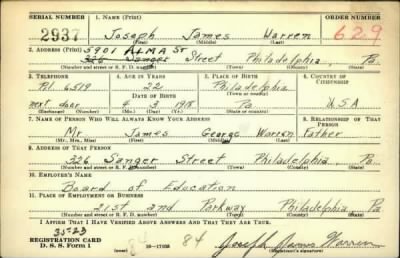 SERIAL NUMBER 1. NAME (Print) ORDER NUMBER
2937 Joseph James Warren 629
(First) (Middle) (Last)
5901 ALMA St
2. ADDRESS (Print)
326 Sanger Street Philadelphia, Pa
(Number and street or R. F. D. number) (Town) (County) (State)
3. TELEPHONE 4. AGE IN YEARS 5. PLACE OF BIRTH 6. COUNTRY OF CITIZENSHIP
22 Philadelphia
6519 DATE OF BIRTH (Town or county)
next door 4 3 1918 Pa USA
(Mo.) (Day) (Yr.) (State or country)
7. NAME OF PERSON WHO WILL ALWAYS KNOW YOUR ADDRESS 8. RELATIONSHIP OF THAT PERSON
Mr James George Warren Father
(Mr., Mrs., Miss) (First) (Middle) (Last)
9. ADDRESS OF THAT PERSON
326 Sanger Street Philadelphia Pa
(Number and street or R. F. D. number) (Town) (County) (State)
10. EMPLOYER'S NAME
Board of Education
11. PLACE OF EMPLOYMENT OR BUSINESS
21st and Parkway Philadelphia Pa
(Number and street or R. F. D. number) (Town) (County) (State)
I AFFIRM THAT I HAVE VERIFIED ABOVE ANSWERS AND THAT THEY ARE TRUE.
35-23
REGISTRATION CARD
D. S. S. Form 1 84 Joseph James Warren
(Registrant's signature)